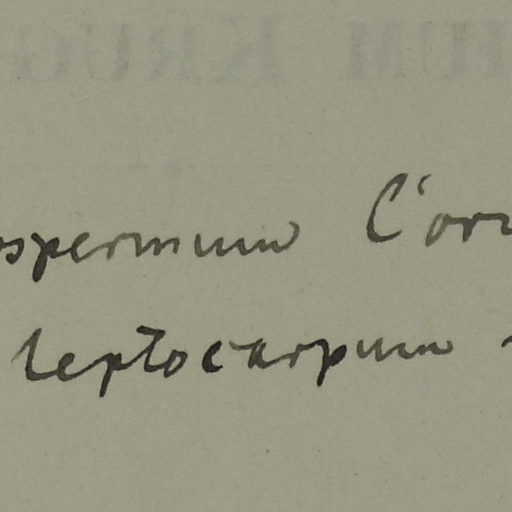 ospermum Cor
leptocarpum